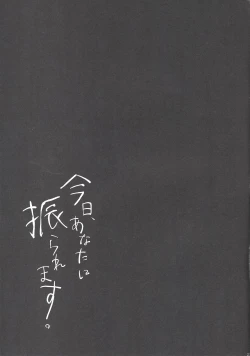 今日、あなたに
振られます。